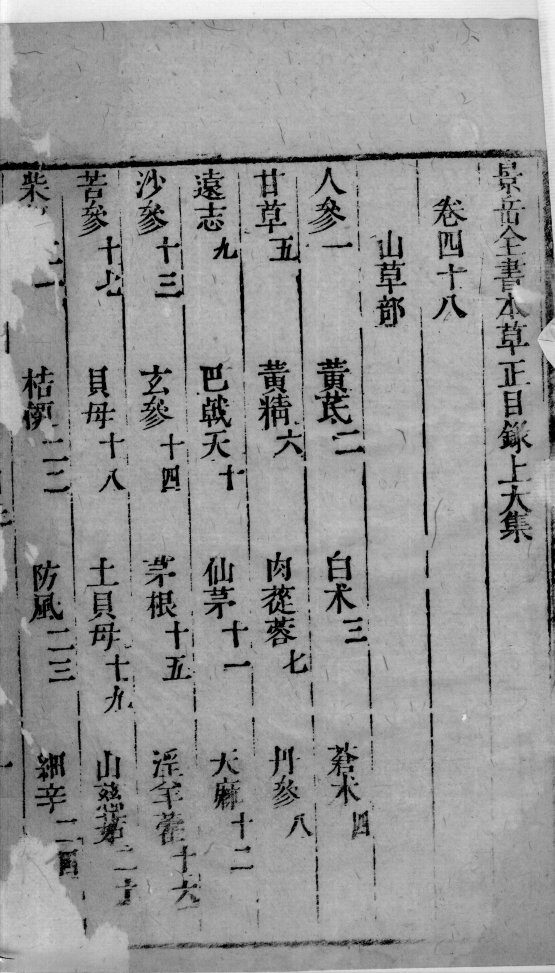 景岳全書本草正目錄上大集
卷四十八
山草部
人參一 黃芪二 白术三 蒼术四
甘草五 黃精六 肉蓯蓉七 丹參八
遠志九 巴戟天十 仙茅十一 天麻十二
沙參十三 玄參十四 茅根十五 淫羊藿十六
苦參十七 貝母十八 土貝母十九 山慈菇二十
柴 一 桔梗二二 防風二三 細辛二四